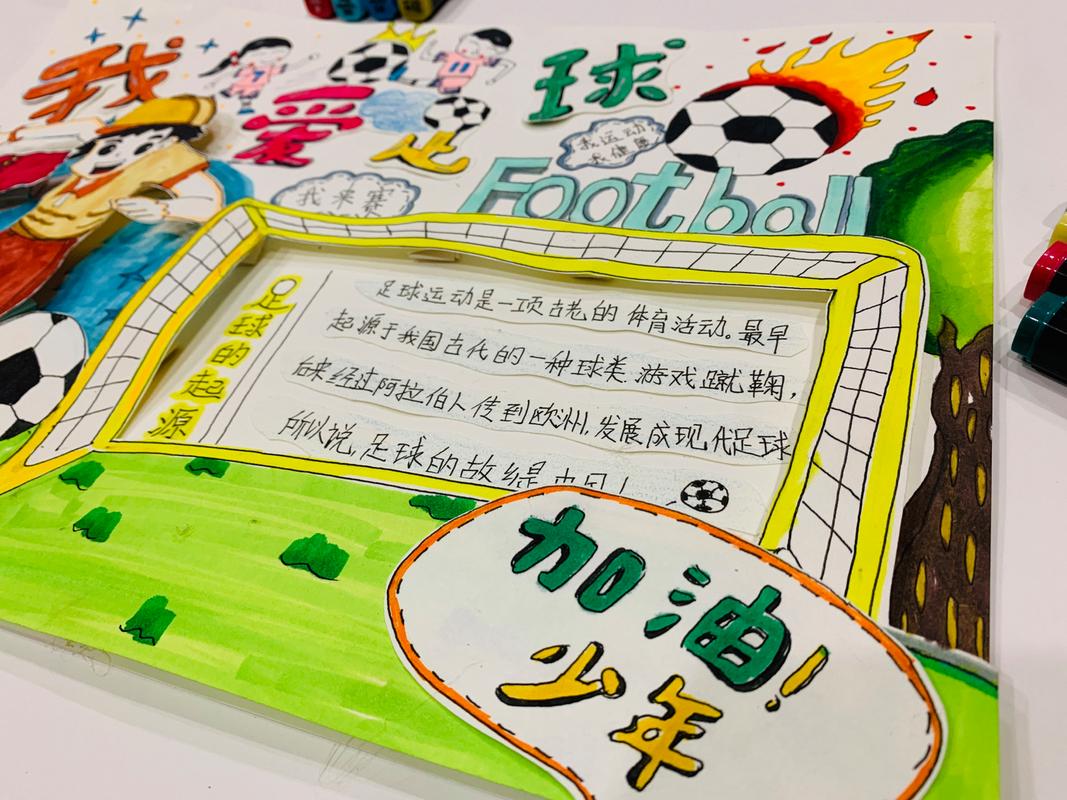 我爱足球
我运动
我健康
Football
我来赛
足球的起源
足球运动是一项古老的体育活动。最早
起源于我国古代的一种球类游戏蹴鞠,
后来经过阿拉伯人传到欧州,发展成现代足球
所以说,足球的故缇中国!
加油!
少年